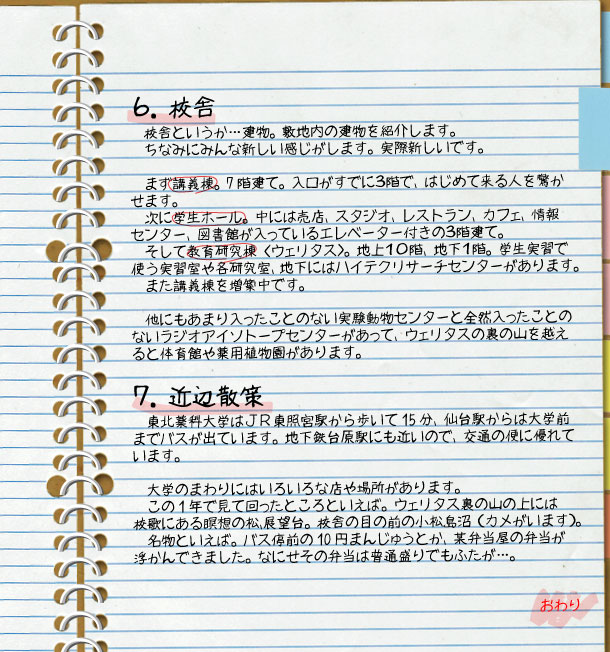 6. 校舎
校舎というか…建物。敷地内の建物を紹介します。
ちなみにみんな新しい感じがします。実際新しいです。
まず講義棟。7階建て。入口がすでに3階で、はじめて来る人を驚か
せます。
次に学生ホール。中には売店、スタジオ、レストラン、カフェ、情報
センター、図書館が入っているエレベーター付きの3階建て。
そして教育研究棟〈ウェリタス〉。地上10階、地下1階。学生実習で
使う実習室や各研究室、地下にはハイテクリサーチセンターがあります。
また講義棟を増築中です。
他にもあまり入ったことのない実験動物センターと全然入ったことの
ないラジオアイソトープセンターがあって、ウェリタスの裏の山を越え
ると体育館や薬用植物園があります。
7. 近辺散策
東北薬科大学はJR東照宮駅から歩いて15分、仙台駅からは大学前
までバスが出ています。地下鉄台原駅にも近いので、交通の便に優れて
います。
大学のまわりにはいろいろな店や場所があります。
この1年で見て回ったところといえば。ウェリタス裏の山の上には
校歌にある瞑想の松,展望台。校舎の目の前の小松島沼（カメがいます）。
名物といえば。バス停前の10円まんじゅうとか、某弁当屋の弁当が
浮かんできました。なにせその弁当は普通盛りでもふたが…。
おわり